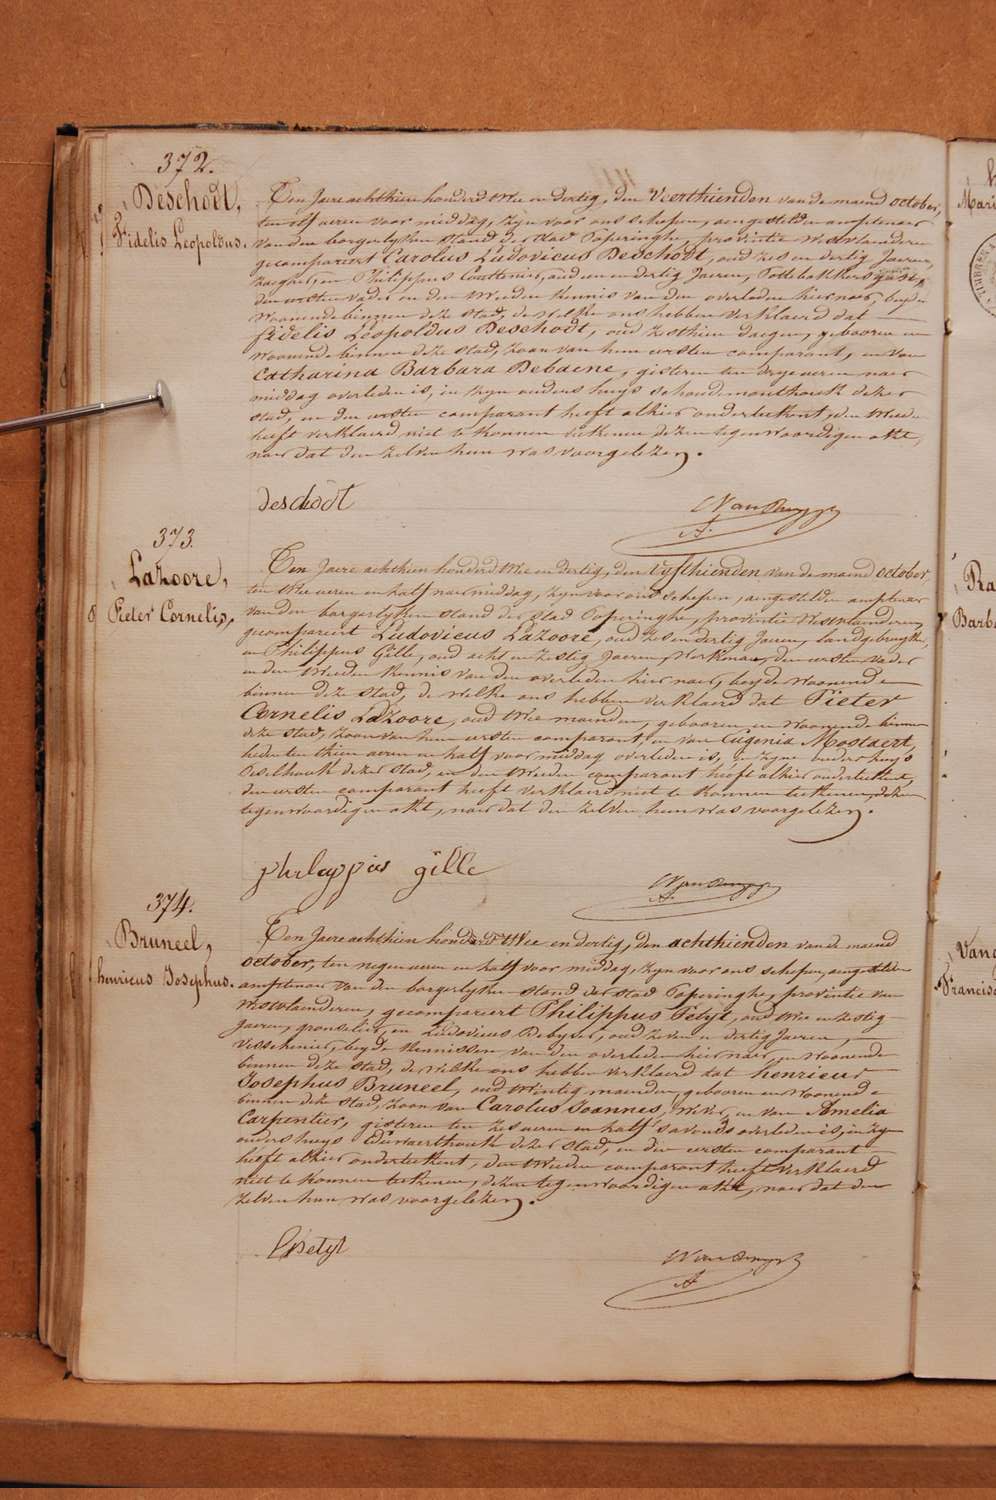 372.
Deschodt,
Fidelis Leopoldus.
Ten Jaere achthien honderd twee en dertig, den Veerthienden van de maend october,
ten elf ueren voor middag, zyn voor ons schepen, aengestelden amptenaer
van den borgerlyken stand der stad Poperinghe, provintie Westvlaenderen
gecompareert Carolus Ludovicus Deschodt, oud zes en dertig Jaeren,
en Philippus Couttenier, oud een en dertig Jaeren, Pottebakkersgast,
den eersten vader en den tweeden kennis van den overleden hier naer, beyde
woonende binnen deze stad, de welke ons hebben verklaerd dat
fidelis Leopoldus Deschodt, oud zesthien dagen, gebooren en
woonende binnen deze stad, zoon van hun eersten comparant, en van
Catharina Barbara Debaene, gisteren ten dry ueren naer
middag overleden is, in zyn ouders huys schoudemonthouk dezer
stad, en den eersten comparant heeft alhier onderteekent, den tweeden
heeft verklaerd niet te konnen teekenen dezen tegenwoordigen akte,
naer dat den zelven hun was voorgelezen.
deschodt
373.
Lazoore,
Pieter Cornelis,
8
Ten Jaere achthien honderd twee en dertig, den vyfthienden van de maend october,
ten twee ueren en half naermiddag, zyn voor ons schepen, aengestelden amptenaer
van den borgerlyken stand der stad Poperinghe, provintie Westvlaenderen,
gecompareert Ludovicus Lazoore, oud zes en dertig Jaeren, landgebruyker,
en Philippus Gille, oud acht en zestig Jaeren, Werkman, den eersten vader
en den tweeden kennis van den overleden hier naer, beyde woonende
binnen deze stad, de welke ons hebben verklaerd dat Pieter
Cornelis Lazoore, oud twee maenden, gebooren en woonende binnen
deze stad, zoon van hun eersten comparant, en van Eugenia Mostaert,
heden ten thien ueren en half voor middag overleden is, in zyne ouders huys
Eselhouk dezer stad, en den tweeden comparant heeft alhier onderteekent,
den eersten comparant heeft verklaerd niet te konnen teekenen, dezen
tegenwoordigen akte, naer dat den zelven hun was voorgelezen.
philippus gille
374.
Bruneel,
henricus Josephus.
Ten Jaere achthien honderd twee en dertig, den achthienden van de maend
october, ten negen ueren en half voor middag, zyn voor ons schepen, aengestelden
amptenaer van den borgerlyken stand der stad Poperinghe, provintie van
Westvlaenderen, gecompareert Philippus Petyt, oud twee en zestig
Jaeren, en Ludovicus Debyser, oud zeven en dertig Jaeren,
beyde kennissen van den overleden hier naer, en woonende
binnen deze stad, de welke ons hebben verklaerd dat henricus
Josephus Bruneel, oud twintig maenden, gebooren en woonende
binnen deze stad, zoon van Carolus Joannes, en van Amelia
Carpentier, gisteren ten zes ueren en half 's avonds overleden is, in zyn
ouders huys dezer stad, en den eersten comparant
heeft alhier onderteekent, den tweeden comparant heeft verklaerd
niet te konnen teekenen, dezen tegenwoordigen akte, naer dat den
zelven hun was voorgelezen.
Petyt